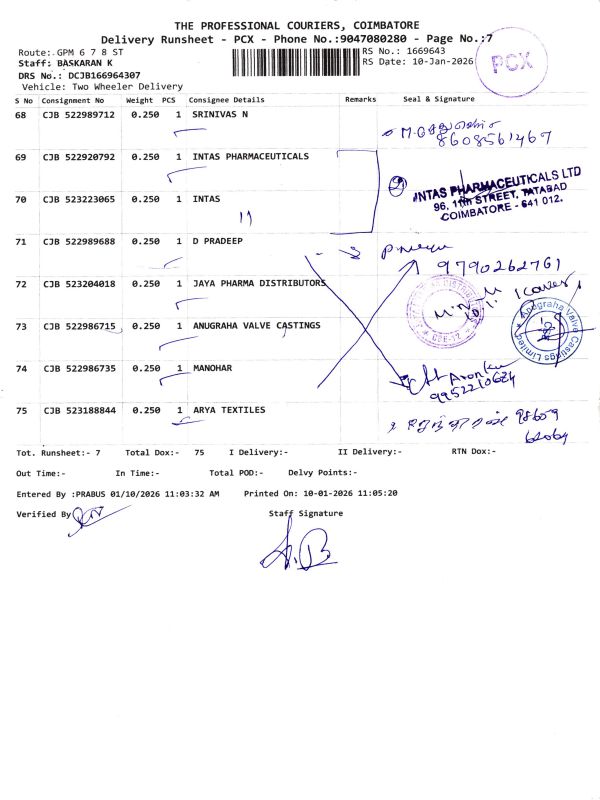 THE PROFESSIONAL COURIERS, COIMBATORE
Delivery Runsheet - PCX - Phone No.:9047080280 - Page No.:7
Route: GPM 6 7 8 ST
RS No.: 1669643
Staff: BASKARAN K
RS Date: 10-Jan-2026
PCX
DRS No.: DCJB166964307
Vehicle: Two Wheeler Delivery
S No Consignment No Weight PCS Consignee Details Remarks Seal & Signature
68 CJB 522989712 0.250 1 SRINIVAS N
8608561467
69 CJB 522920792 0.250 1 INTAS PHARMACEUTICALS
INTAS PHARMACEUTICALS LTD
96, 11th STREET, TATABAD
COIMBATORE - 641 012.
70 CJB 523223065 0.250 1 INTAS
71 CJB 522989688 0.250 1 D PRADEEP
9790262761
72 CJB 523204018 0.250 1 JAYA PHARMA DISTRIBUTORS
CBE-12
73 CJB 522986715 0.250 1 ANUGRAHA VALVE CASTINGS
Anugraha Valve Castings Limited
74 CJB 522986735 0.250 1 MANOHAR
9952210624
75 CJB 523188844 0.250 1 ARYA TEXTILES
98659
Tot. Runsheet:- 7 Total Dox:- 75 I Delivery:- II Delivery:- RTN Dox:-
Out Time:- In Time:- Total POD:- Delvy Points:-
Entered By :PRABUS 01/10/2026 11:03:32 AM Printed On: 10-01-2026 11:05:20
Verified By Staff Signature